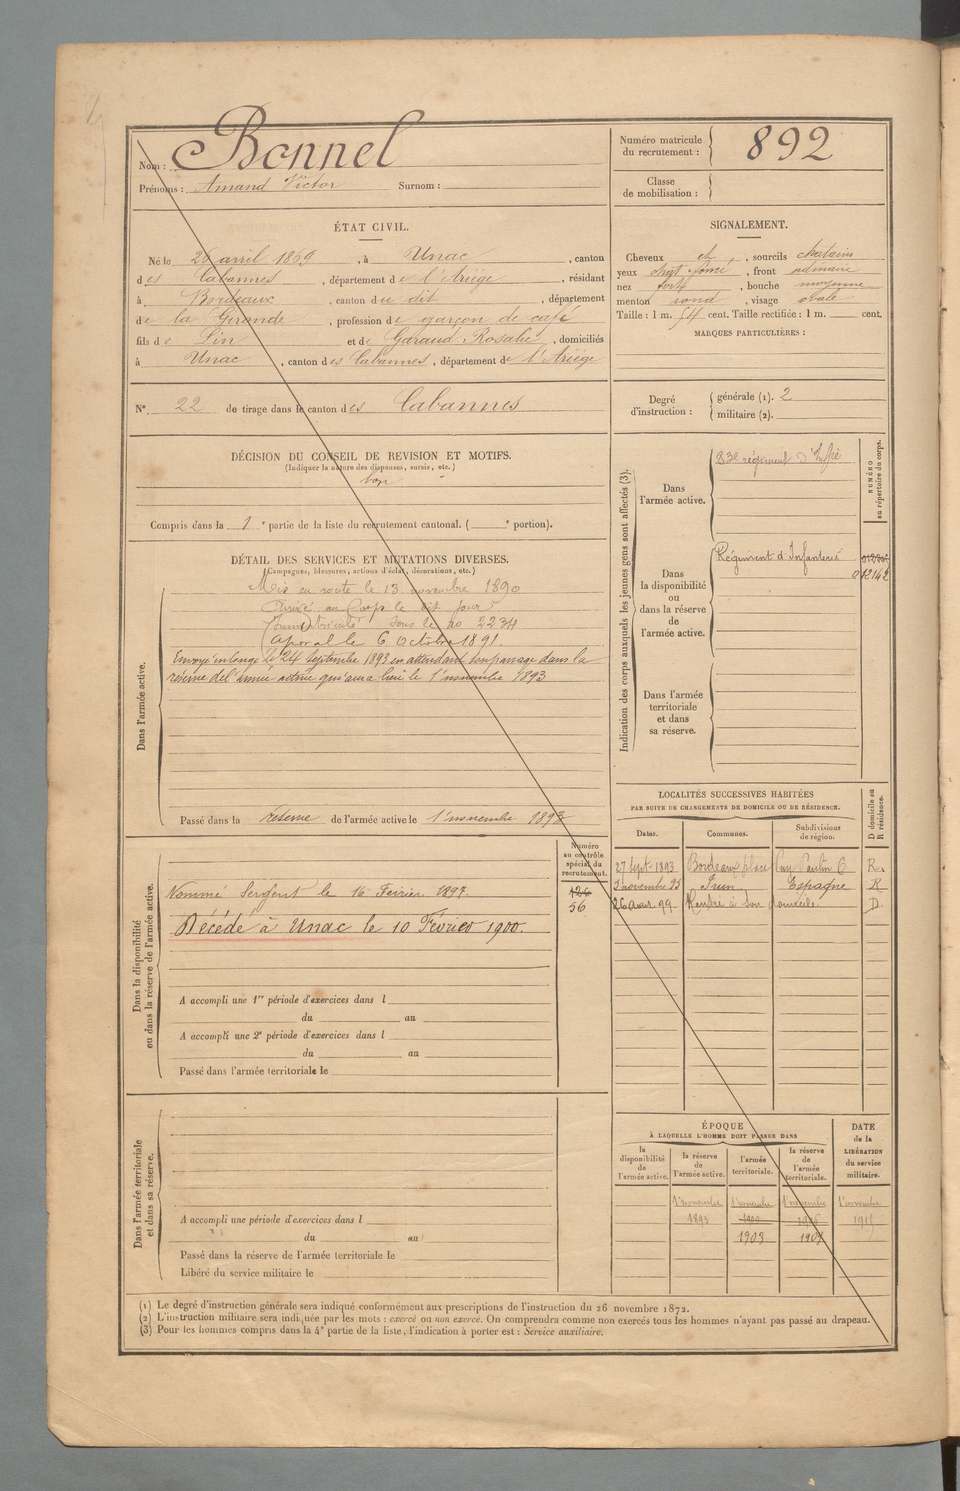 Nom : Bonnel
Prénoms : Amand Victor Surnom :
Numéro matricule
du recrutement : 892
Classe
de mobilisation :
ÉTAT CIVIL.
Né le 26 avril 1869, à Unac, canton
des Cabannes, département de l'Ariège, résidant
à Bordeaux, canton du dit, département
de la Gironde, profession de garçon de café
fils de Pin et de Garaud Rosalie, domiciliés
à Unac, canton des Cabannes, département de l'Ariège
N° 22 de tirage dans le canton des Cabannes
DÉCISION DU CONSEIL DE REVISION ET MOTIFS.
(Indiquer la nature des dispenses, sursis, etc.)
bon
Compris dans la 1e partie de la liste du recrutement cantonal. ( e portion).
DÉTAIL DES SERVICES ET MUTATIONS DIVERSES.
(Campagnes, blessures, actions d'éclat, décorations, etc.)
Dans l'armée active.
Mis en route le 13 novembre 1890
Arrivé au Corps le dit jour
Immatriculé sous le no 2234
Caporal le 6 Octobre 1891.
Envoyé en congé le 24 Septembre 1893 en attendant son passage dans la
réserve de l'armée active qui aura lieu le 1er novembre 1893
Passé dans la réserve de l'armée active le 1er novembre 1893
Dans la disponibilité
ou dans la réserve de l'armée active.
Numéro
au contrôle
spécial du
recrutement.
126
56
Nommé Sergent le 16 Fevrier 1897.
Décédé à Unac le 10 Février 1900.
A accompli une 1re période d'exercices dans l
du au
A accompli une 2e période d'exercices dans l
du au
Passé dans l'armée territoriale le
Dans l'armée territoriale
et dans sa réserve.
A accompli une période d'exercices dans l
du au
Passé dans la réserve de l'armée territoriale le
Libéré du service militaire le
SIGNALEMENT.
Cheveux et, sourcils chatains
yeux, front ordinaire
nez fort, bouche moyenne
menton rond, visage ovale
Taille : 1 m. 54 cent. Taille rectifiée : 1 m. cent.
MARQUES PARTICULIÈRES :
Degré
d'instruction :
générale (1). 2
militaire (2).
Indication des corps auxquels les jeunes gens sont affectés (3).
NUMÉRO
au répertoire du corps.
Dans
l'armée active.
83e régiment d'Infie
Dans
la disponibilité
ou
dans la réserve
de
l'armée active.
Régiment d'Infanterie
012142
Dans l'armée
territoriale
et dans
sa réserve.
LOCALITÉS SUCCESSIVES HABITÉES
PAR SUITE DE CHANGEMENTS DE DOMICILE OU DE RÉSIDENCE.
D domicile ou
R résidence.
Dates. Communes. Subdivisions
de région.
27 Sept. 1893 Bordeaux, place R.
3 novembre 95 Irun Espagne R
26 99 Rentré à son domicile. D.
ÉPOQUE
À LAQUELLE L'HOMME DOIT PASSER DANS
la
disponibilité
de
l'armée active.
la réserve
de
l'armée active.
l'armée
territoriale.
la réserve
de
l'armée
territoriale.
DATE
de la
LIBÉRATION
du service
militaire.
1er novembre 1er novembre 1er novembre 1er novembre
1893 1900 1906 1915
1903 1909
(1) Le degré d'instruction générale sera indiqué conformément aux prescriptions de l'instruction du 26 novembre 1872.
(2) L'instruction militaire sera indiquée par les mots : exercé ou non exercé. On comprendra comme non exercés tous les hommes n'ayant pas passé au drapeau.
(3) Pour les hommes compris dans la 4e partie de la liste, l'indication à porter est : Service auxiliaire.